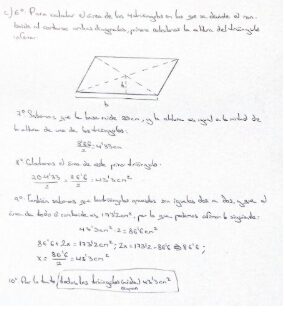 c) 6º. Para calcular el área de los 4 triángulos en los que se divide el rom-
boide al cortarse ambas diagonales, primero calculamos la altura del triángulo
inferior:
h
b
7º. Sabemos que la base mide 20 cm, y la altura es igual a la mitad de
la altura de uno de los triángulos:
8'66/2 = 4'33 cm
8º Calculamos el área de este primer triángulo:
20·4'33/2 = 86'6/2 = 43'3 cm²
9º. También sabemos que los triángulos opuestos son iguales dos a dos, y que el
área de todo el romboide es 173'2 cm², por lo que podemos afirmar lo siguiente:
43'3 cm² · 2 = 86'6 cm²
86'6 + 2x = 173'2 cm²; 2x = 173'2 - 86'6 = 86'6;
x = 86'6/2 = 43'3 cm²
10º Por lo tanto, todos los triángulos 43'3 cm²